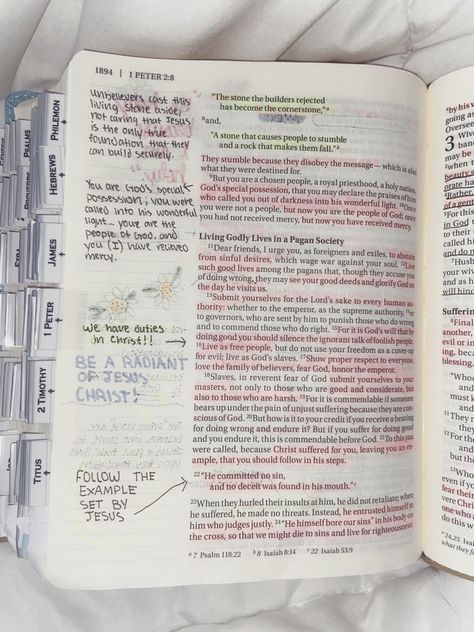 1894 | 1 PETER 2:8
unbelievers cast this
living stone aside,
not caring that Jesus
is the only true
foundation that they
can build securely.
You are God's special
possession, you were
called into his wonderful
light... your are the
people of God, and
you (I) have recived
mercy.
we have duties
in Christ!!
BE A RADIANT
OF JESUS
CHRIST!
FOLLOW THE
EXAMPLE
SET BY
JESUS
PHILEMON
PSALMS
HEBREWS
JAMES
1 PETER
2 TIMOTHY
TITUS
"The stone the builders rejected
has become the cornerstone,"a
and,
"A stone that causes people to stumble
and a rock that makes them fall."b
They stumble because they disobey the message—which is also
what they were destined for.
9But you are a chosen people, a royal priesthood, a holy nation,
God's special possession, that you may declare the praises of him
who called you out of darkness into his wonderful light. 10Once you
were not a people, but now you are the people of God; once you
had not received mercy, but now you have received mercy.
Living Godly Lives in a Pagan Society
11Dear friends, I urge you, as foreigners and exiles, to abstain
from sinful desires, which wage war against your soul. 12Live
such good lives among the pagans that, though they accuse you
of doing wrong, they may see your good deeds and glorify God on
the day he visits us.
13Submit yourselves for the Lord's sake to every human au-
thority: whether to the emperor, as the supreme authority, 14or
to governors, who are sent by him to punish those who do wrong
and to commend those who do right. 15For it is God's will that by
doing good you should silence the ignorant talk of foolish people.
16Live as free people, but do not use your freedom as a cover-up
for evil; live as God's slaves. 17Show proper respect to everyone,
love the family of believers, fear God, honor the emperor.
18Slaves, in reverent fear of God submit yourselves to your
masters, not only to those who are good and considerate, but
also to those who are harsh. 19For it is commendable if someone
bears up under the pain of unjust suffering because they are con-
scious of God. 20But how is it to your credit if you receive a beating
for doing wrong and endure it? But if you suffer for doing good
and you endure it, this is commendable before God. 21To this you
were called, because Christ suffered for you, leaving you an ex-
ample, that you should follow in his steps.
22"He committed no sin,
and no deceit was found in his mouth."c
23When they hurled their insults at him, he did not retaliate; when
he suffered, he made no threats. Instead, he entrusted himself to
him who judges justly. 24"He himself bore our sins" in his body on
the cross, so that we might die to sins and live for righteousness;
a 7 Psalm 118:22 b 8 Isaiah 8:14 c 22 Isaiah 53:9